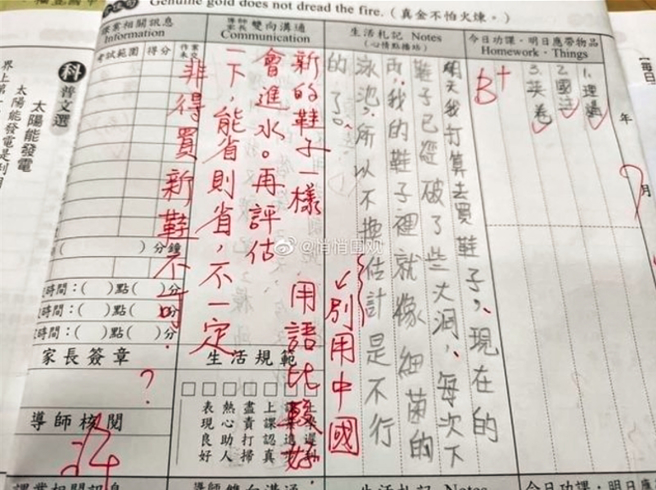 Genuine gold does not dread the fire.（真金不怕火煉。）
今日功課‧明日應帶物品
Homework‧Things
1.理過
2.國注
3.英卷
B+
年
月
生活札記 Notes
(心情點播站)
明天我打算去買鞋子，現在的
鞋子已經破了些大洞，每次下
雨，我的鞋子裡就像細菌的
泳池，所以不換估計是不行
的了。
別用中國
用語比較好
親師
家長
雙向溝通
Communication
新的鞋子一樣
會進水。再評估
一下，能省則省，不一定
非得買新鞋不可。
生活規範
上課認真
盡責打掃
熱心助人
表現良好
課業相關訊息
Information
考試範圍
得分
作業
未交
(　)分鐘
時間：(　)點(　)分
時間：(　)點(　)分
時間：(　)點(　)分
家長簽章
?
導師核閱
科普文選
太陽能發電
太陽能發電是利用
界上第一
@悄悄围观
課業相關訊息
導師 雙向溝通
生活札記 Notes
今日功課‧明日應